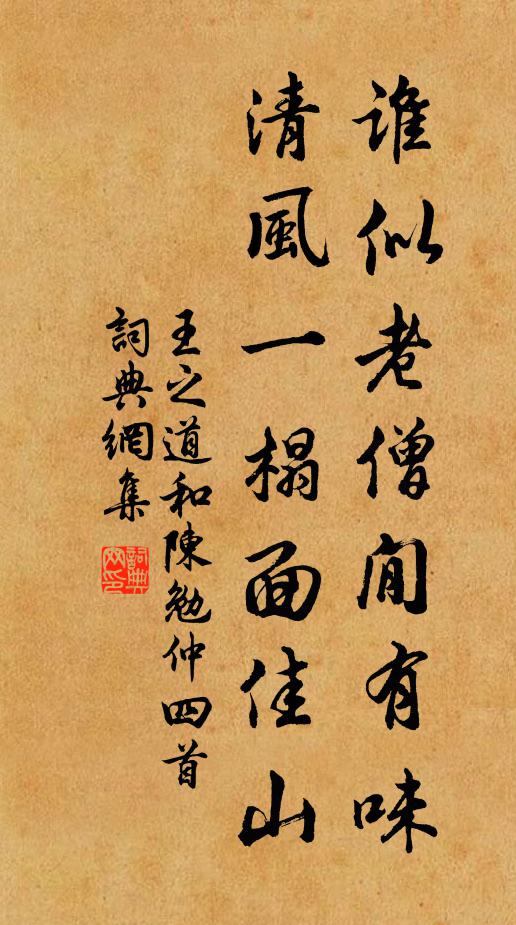 誰似老僧閒有味
清風一榻面佳山
王之道和陳勉仲四首
詞典網集
詞典網印